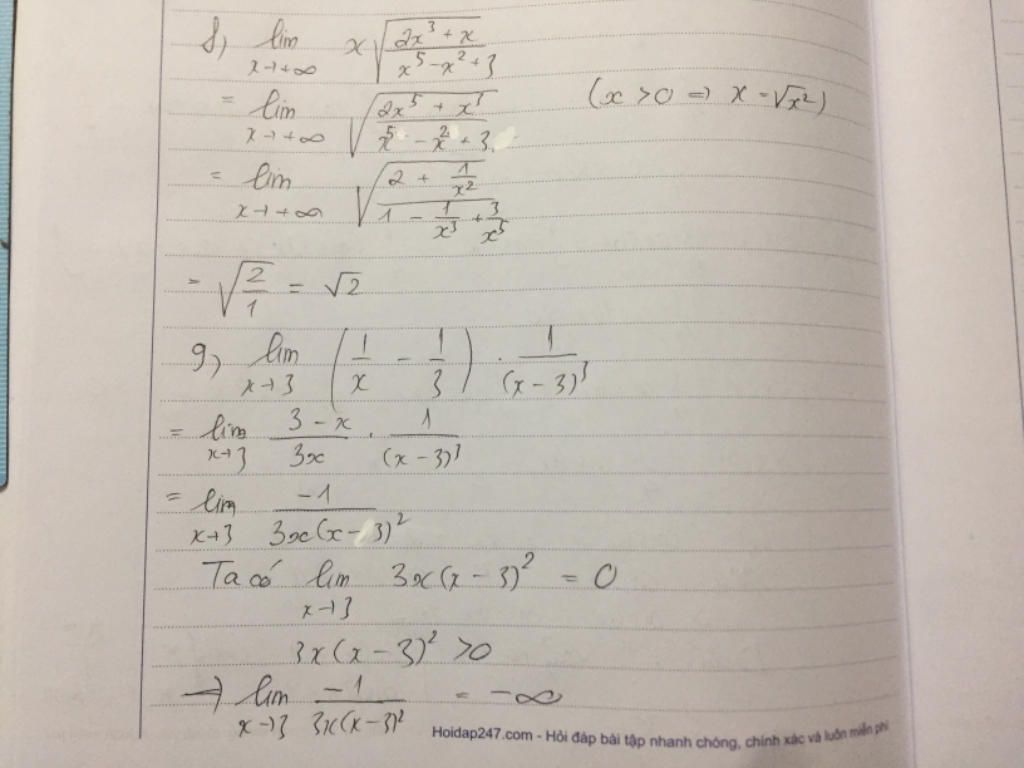 f, lim x→+∞ x√((2x³ + x)/(x⁵ - x² + 3))
= lim x→+∞ √((2x⁵ + x³)/(x⁵ - x² + 3)) (x > 0 ⇒ x = √x²)
= lim x→+∞ √((2 + 1/x²)/(1 - 1/x³ + 3/x⁵))
= √(2/1) = √2
g, lim x→3 (1/x - 1/3) . 1/(x - 3)³
= lim x→3 (3 - x)/3x . 1/(x - 3)³
= lim x→3 -1/(3x(x - 3)²)
Ta có lim x→3 3x(x - 3)² = 0
3x(x - 3)² > 0
→ lim x→3 -1/(3x(x-3)²) = -∞
Hoidap247.com - Hỏi đáp bài tập nhanh chóng, chính xác và luôn miễn phí